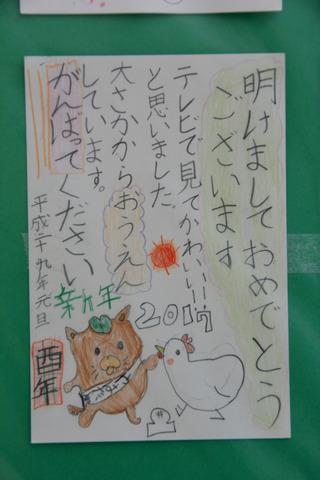 明けましておめでとう
ございます
テレビで見てかわいいー!
と思いました。
大さかからおうえん
しています。
がんばってください
平成二十九年元旦
新年
2017
酉年